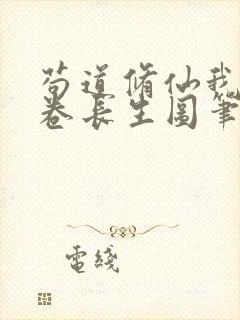 苟道脩仙我
卷長生圖筆
電綫